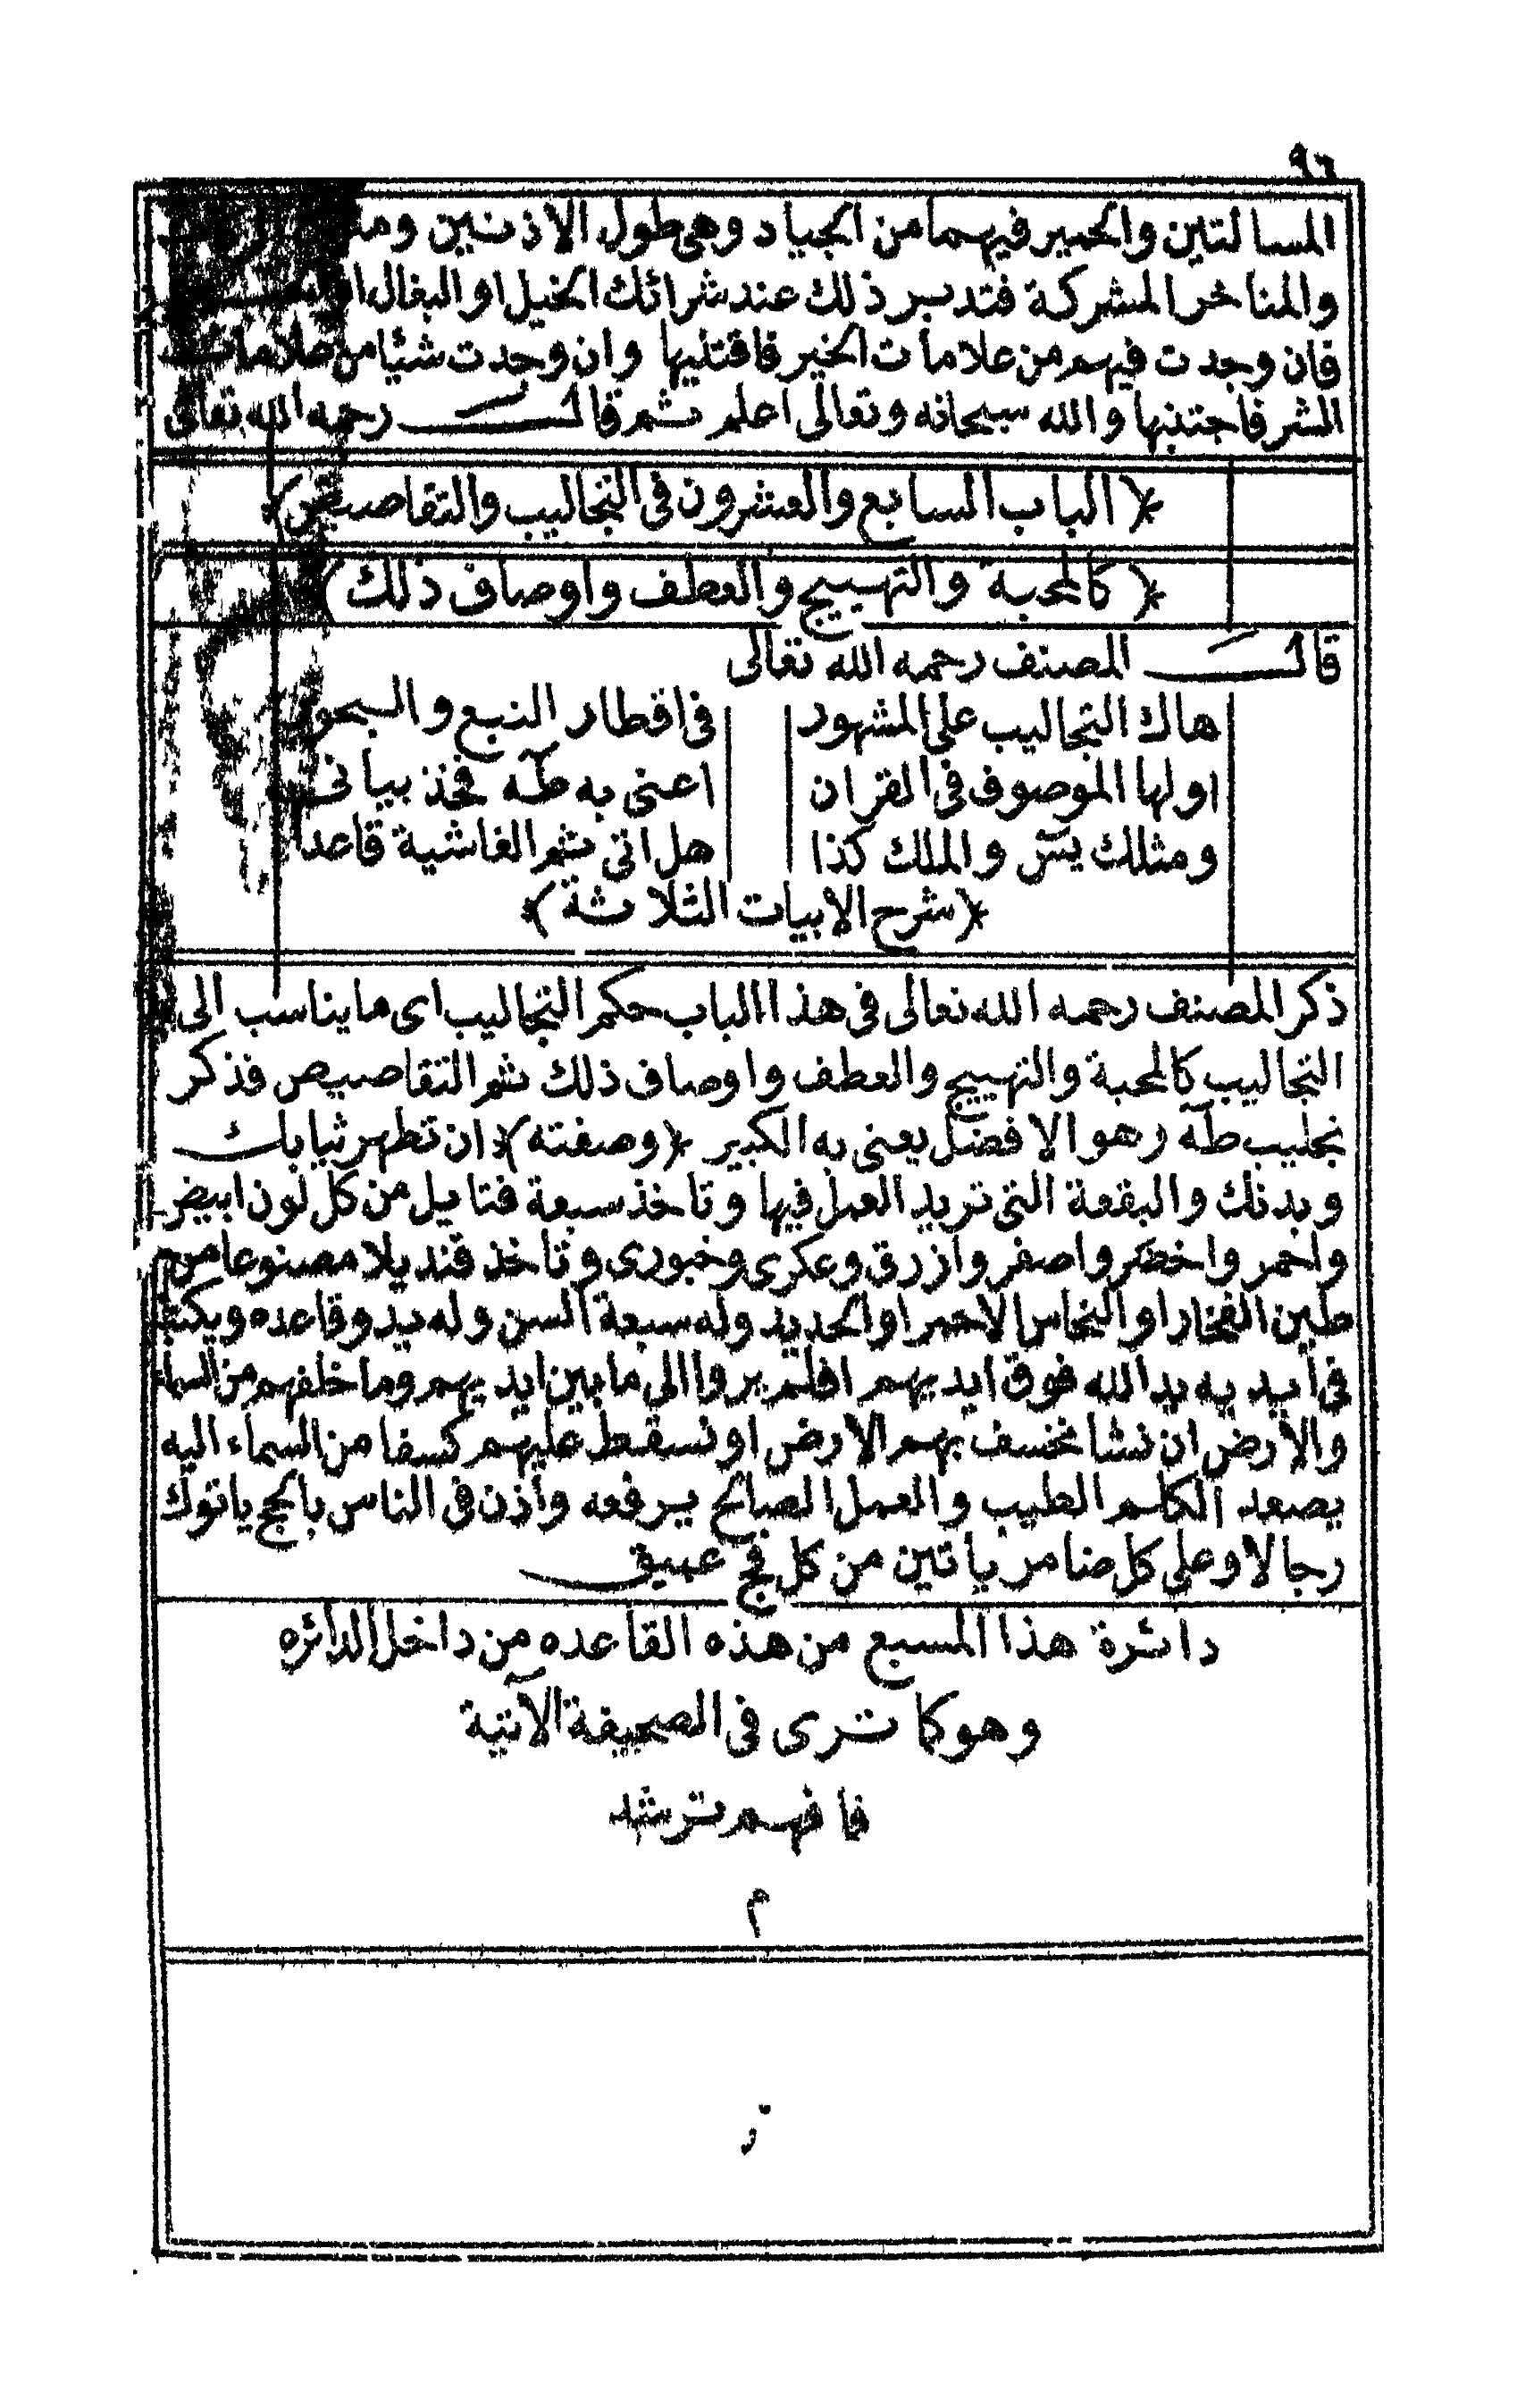 ٩٦
المسالتين والحمير فيهما من الجياد وهى طول الاذنين
والمناخر المشركة فتدبر ذلك عند شرائك الخيل او البغال او
فان وجدت فيهم من علامات الخير فاقتنيها وان وجدت شيئا من علامات
الشر فاجتنبها والله سبحانه وتعالى اعلم ثم قال رحمه الله تعالى
﴿الباب السابع والعشرون فى التجاليب والتقاصيص﴾
﴿كالمحبة والتهييج والعطف واوصاف ذلك﴾
قال المصنف رحمه الله تعالى
هاك التجاليب على المشهور فى اقطار النبع والبحور
اولها الموصوف فى القران اعنى به طه فخذ بيانى
ومثلك يس والملك كذا هل اتى ثم الغاشية قاعدا
﴿شرح الابيات الثلاثة﴾
ذكر المصنف رحمه الله تعالى فى هذا الباب حكم التجاليب اى ما يناسب الى
التجاليب كالمحبة والتهييج والعطف واوصاف ذلك ثم التقاصيص فذكر
تجليب طه وهو الافضل يعنى به الكبير ﴿وصفته﴾ ان تطهر ثيابك
وبدنك والبقعة التى تريد العمل فيها وتاخذ سبعة فتايل من كل لون ابيض
واحمر واخضر واصفر وازرق وعكرى وخبورى وتاخذ قنديلا مصنوعا من
طين الفخار او النحاس الاحمر او الحديد وله سبعة السن وله يد وقاعده ويكتب
فى ايديه يد الله فوق ايديهم افلم يروا الى ما بين ايديهم وما خلفهم من السماء
والارض ان نشا نخسف بهم الارض او نسقط عليهم كسفا من السماء اليه
يصعد الكلم الطيب والعمل الصالح يرفعه واذن فى الناس بالحج ياتوك
رجالا وعلى كل ضامر ياتين من كل فج عميق
دائرة هذا المسبع من هذه القاعده من داخل الدائره
وهو كما ترى فى الصحيفة الآتية
فافهم ترشد
م